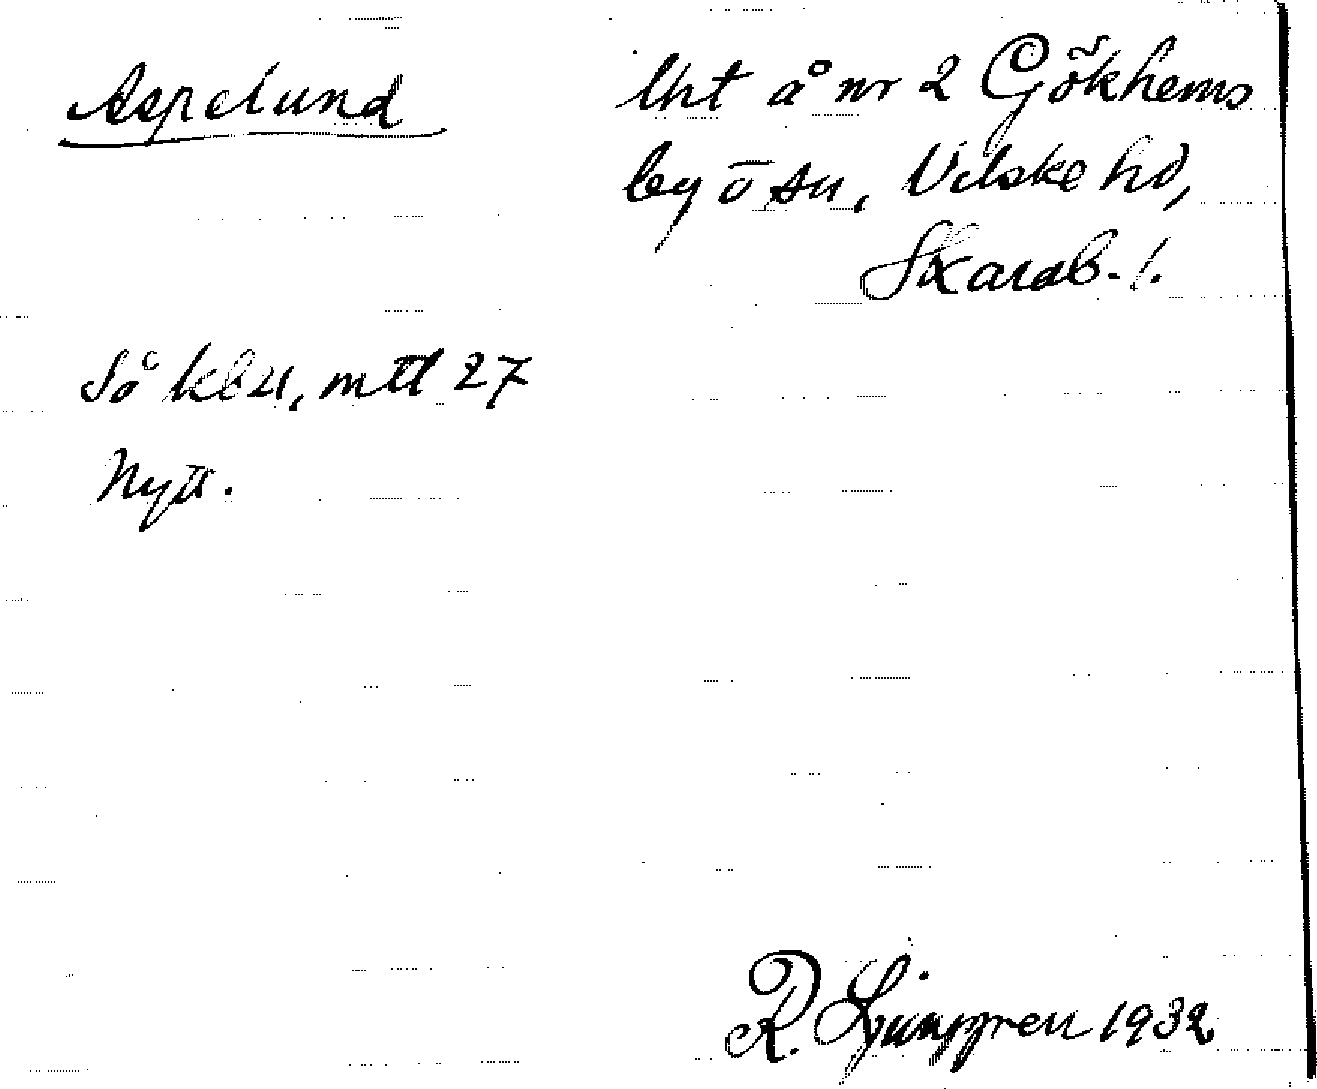 Aspelund
lht å nr 2 Gökhems
by o sn, Vilske hd,
Skarab. l.
Så kbn, mtl 27
Nytt.
R. Ljunggren 1932